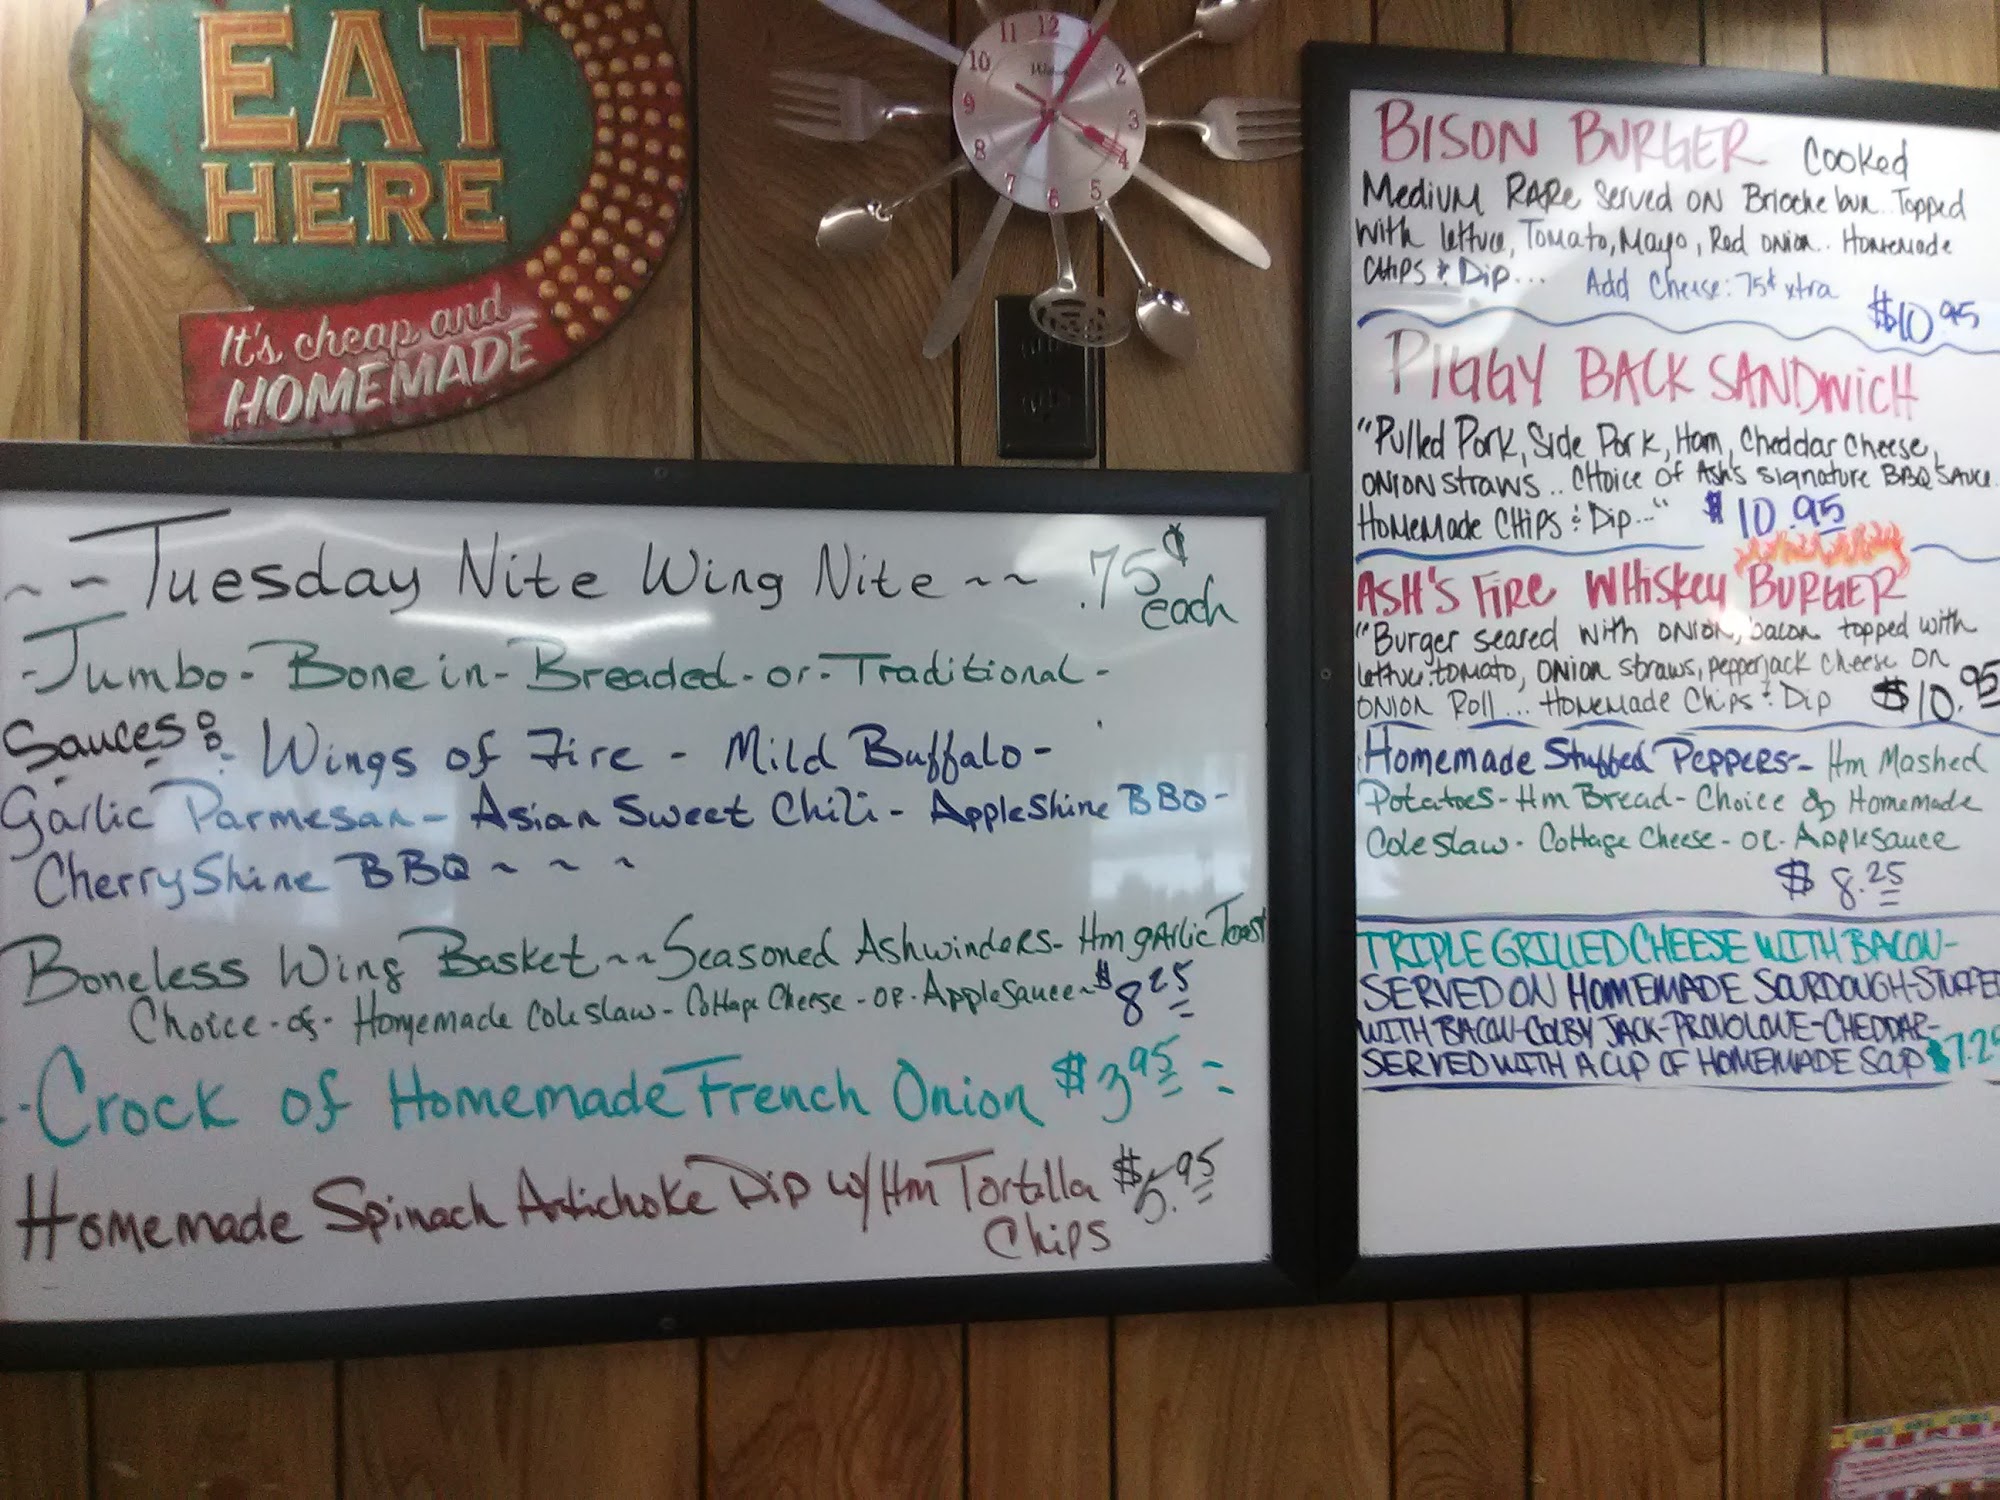 EAT
HERE
It's cheap and
HOMEMADE
12
1
2
3
4
5
6
7
8
9
10
11
~ ~ Tuesday Nite Wing Nite ~ ~ .75¢
each
- Jumbo - Bone in - Breaded - or - Traditional -
Sauces: - Wings of Fire - Mild Buffalo -
Garlic Parmesan - Asian Sweet Chili - AppleShine BBQ -
CherryShine BBQ ~ ~ ~
Boneless Wing Basket ~~ Seasoned Ashwinders - Hm garlic Toast
Choice - of - Homemade Coleslaw - Cottage Cheese - OR - Applesauce ~ $8.25
- Crock of Homemade French Onion $3.95 =
Homemade Spinach Artichoke Dip w/ Hm Tortilla $5.95
Chips
BISON BURGER Cooked
Medium RARe Served ON Brioche bun.. Topped
with lettuce, Tomato, Mayo, Red onion.. Homemade
CHIPS & Dip... Add Cheese: 75¢ xtra
$10.95
PIGGY BACK SANDWICH
"Pulled Pork, Side Pork, Ham, Cheddar Cheese,
ONION Straws .. CHOICE OF Ash's Signature BBQ Sauce.
HomeMade CHips & Dip..." $10.95
ASH'S FIRE WHISKEY BURGER
"Burger seared with ONION, bacon topped with
lettuce, tomato, ONION Straws, pepperjack cheese on
ONION ROLL ... HOMEMADE Chips & Dip $10.95
Homemade Stuffed Peppers - Hm Mashed
Potatoes - Hm Bread - Choice of Homemade
Coleslaw - Cottage Cheese - OR - Applesauce
$8.25
TRIPLE GRILLED CHEESE WITH BACON -
SERVED ON HOMEMADE SOURDOUGH - STUFFED
WITH BACON - COLBY JACK - PROVOLONE - CHEDDAR -
SERVED WITH A CUP OF HOMEMADE SOUP $7.25